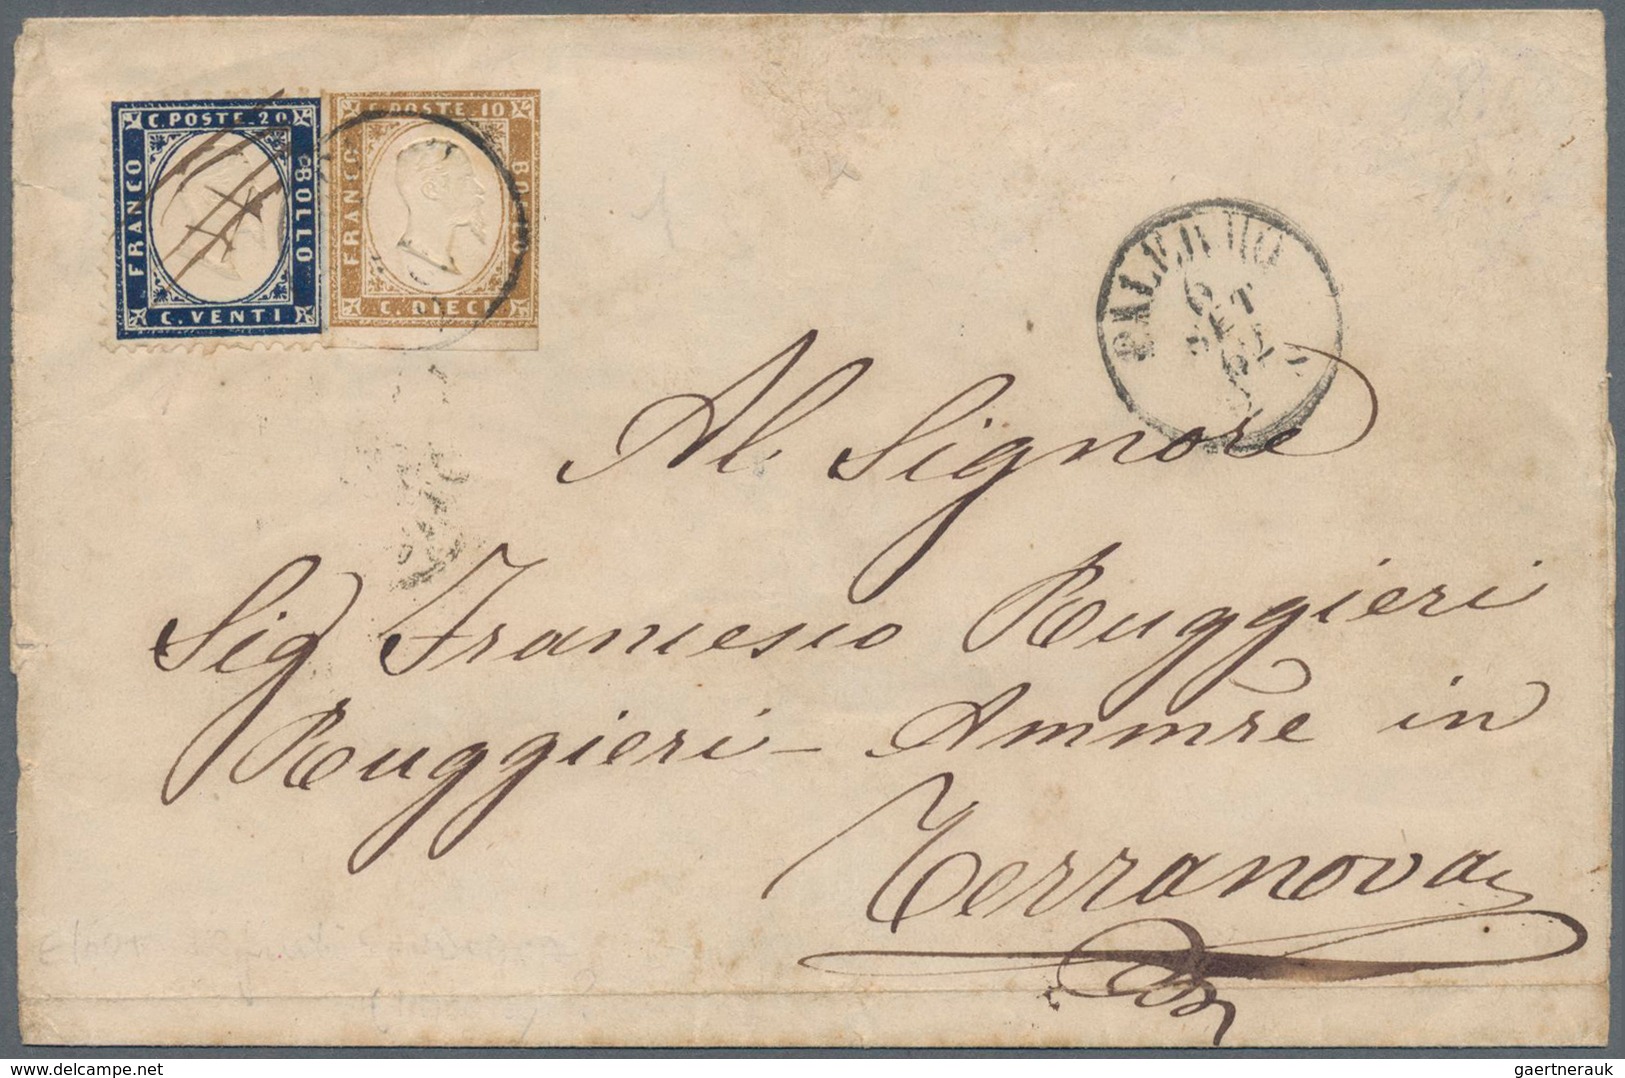 C. POSTE. 20
FRANCO
BOLLO
C. VENTI
C. POSTE. 10
FRANCO
BOLLO
C. DIECI
SET
62
Al Signore
Sig Francesco Ruggieri
Ruggieri - Ammre in
Terranova
gaertnerauk
delcampe.net